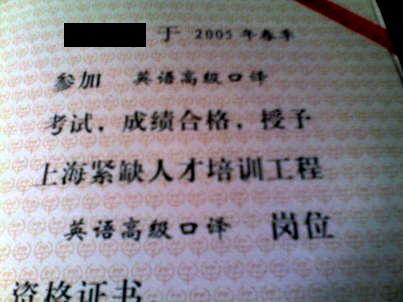 于 2005 年春季
参加 英语高级口译
考试，成绩合格，授予
上海紧缺人才培训工程
英语高级口译 岗位
资格证书